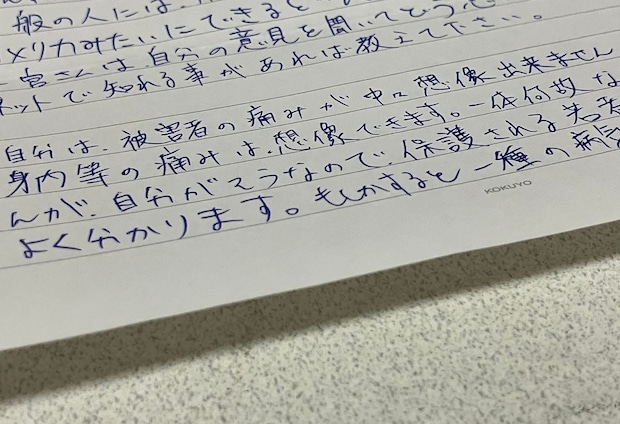 般の人には、
メリカみたいにできると
宮さんは自分の意見を聞いてどう
ネットで知れる事があれば教えて下さい。
自分は、被害者の痛みが中々想像出来ません
身内等の痛みは、想像できます。一体何故な
んが、自分がそうなので、保護される
よく分かります。もしかすると一種の病気
KOKUYO